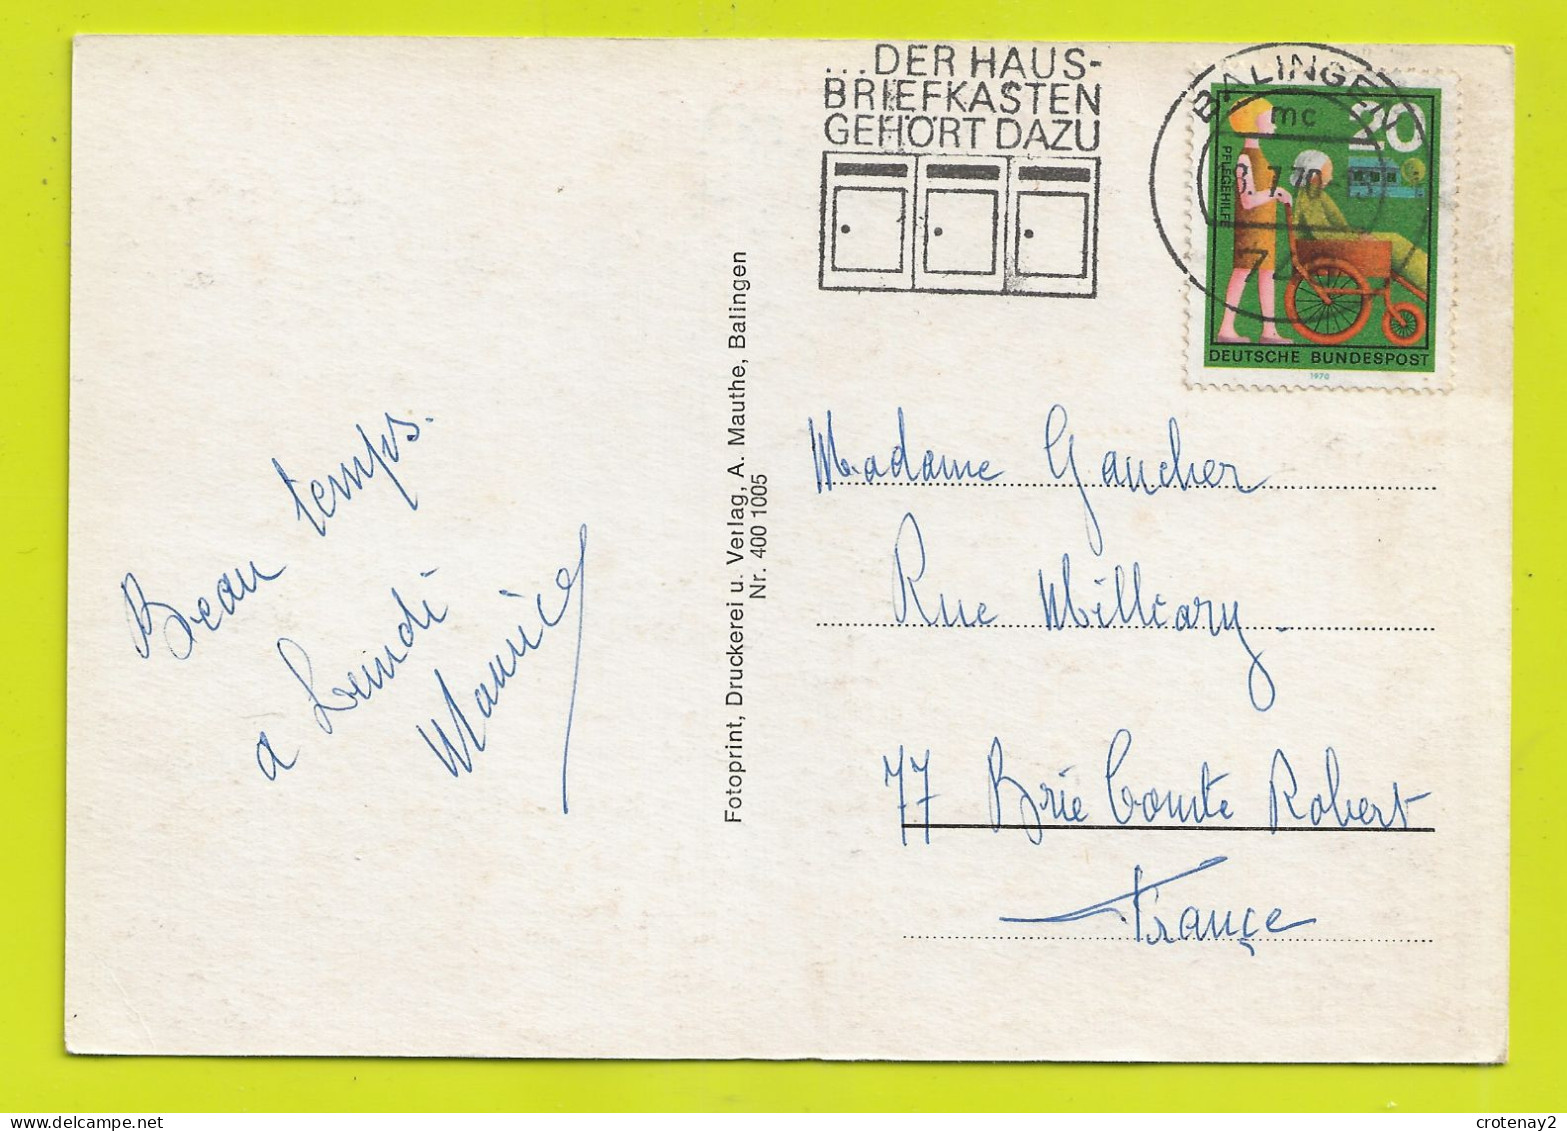 ...DER HAUS-
BRIEFKASTEN
GEHÖRT DAZU
BALINGEN
mc
8.7.70
74
20
PFLEGEHILFE
DEUTSCHE BUNDESPOST
1970
Beau temps.
a Lundi
Maurice
Fotoprint, Druckerei u. Verlag, A. Mauthe, Balingen
Nr. 400 1005
Madame Gaucher
Rue Milliary.
77 Brie Comte Robert
France
crotenay2
www.delcampe.net